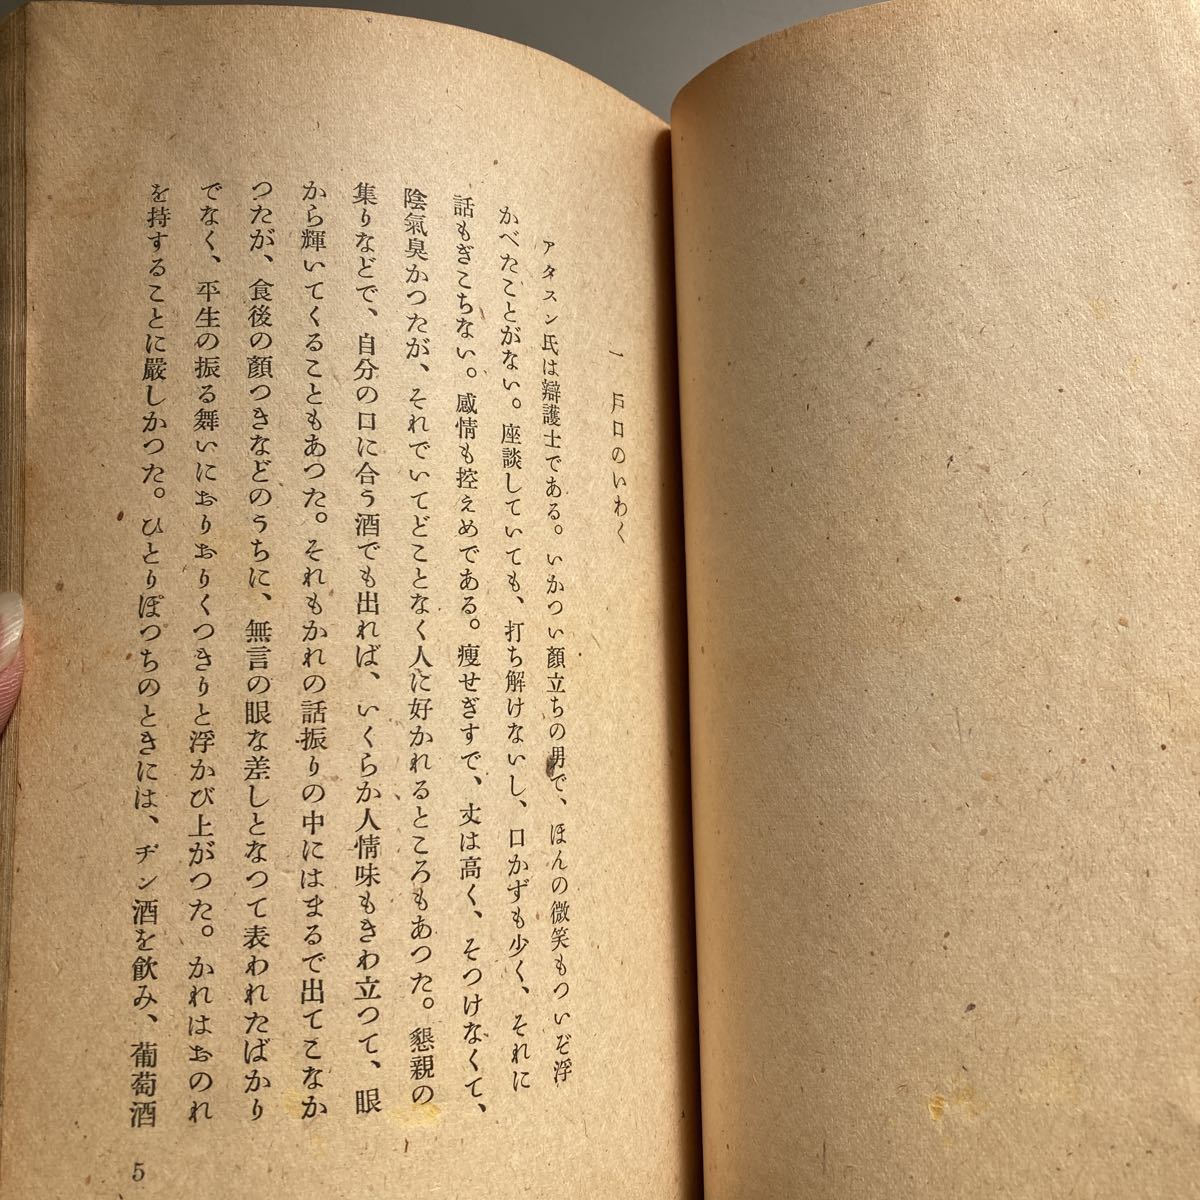 一 戸口のいわく
アタスン氏は辯護士である。いかつい顔立ちの男で、ほんの微笑もついぞ浮
かべたことがない。座談していても、打ち解けないし、口かずも少く、それに
話もぎこちない。感情も控えめである。痩せぎすで、丈は高く、そつけなくて、
陰氣臭かつたが、それでいてどことなく人に好かれるところもあつた。懇親の
集りなどで、自分の口に合う酒でも出れば、いくらか人情味もきわ立つて、眼
から輝いてくることもあつた。それもかれの話振りの中にはまるで出てこなか
つたが、食後の顔つきなどのうちに、無言の眼な差しとなつて表われたばかり
でなく、平生の振る舞いにおりおりくつきりと浮かび上がつた。かれはおのれ
を持することに嚴しかつた。ひとりぽつちのときには、ヂン酒を飲み、葡萄酒
5